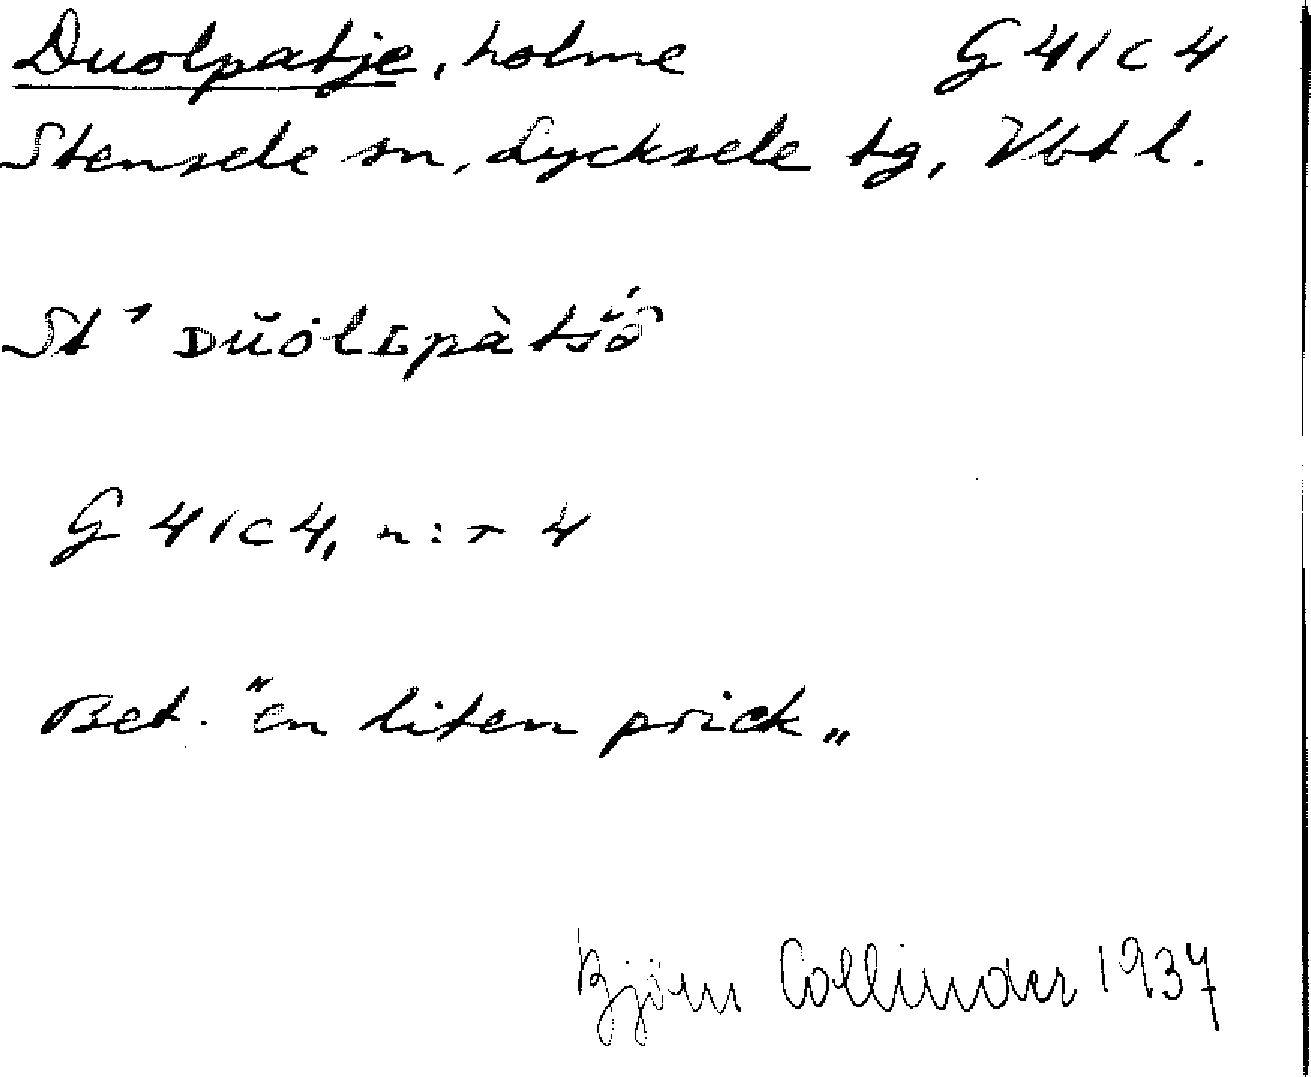 Duolpatje, holme G 41 c 4
Stensele sn, Lycksele tg, Vbt l.
St¹
G 41 c 4, n:r 4
Bet. "en liten prick„
Björn Collinder 1937